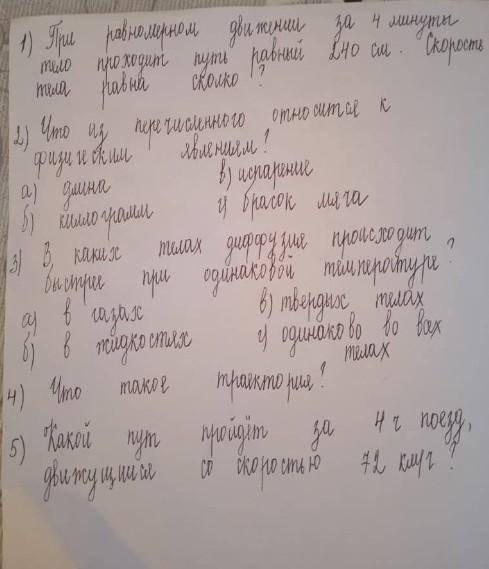 1) При равномерном движении за 4 минуты
тело проходит путь равный 240 см. Скорость
тела равна сколко?
2) Что из перечисленного относится к
физическим явлениям?
а) длина в) испарение
б) киллограмм г) брасок мяча
3) В каких телах диффузия происходит
быстрее при одинаковой температуре?
а) в газах в) твердых телах
б) в жидкостях г) одинаково во всех
телах
4) Что такое траектория?
5) Какой пут пройдёт за 4 ч поезд,
движущийся со скоростью 72 км/ч?